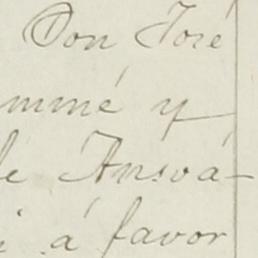 Don José
mmé y
le Ansoá-
i á favor